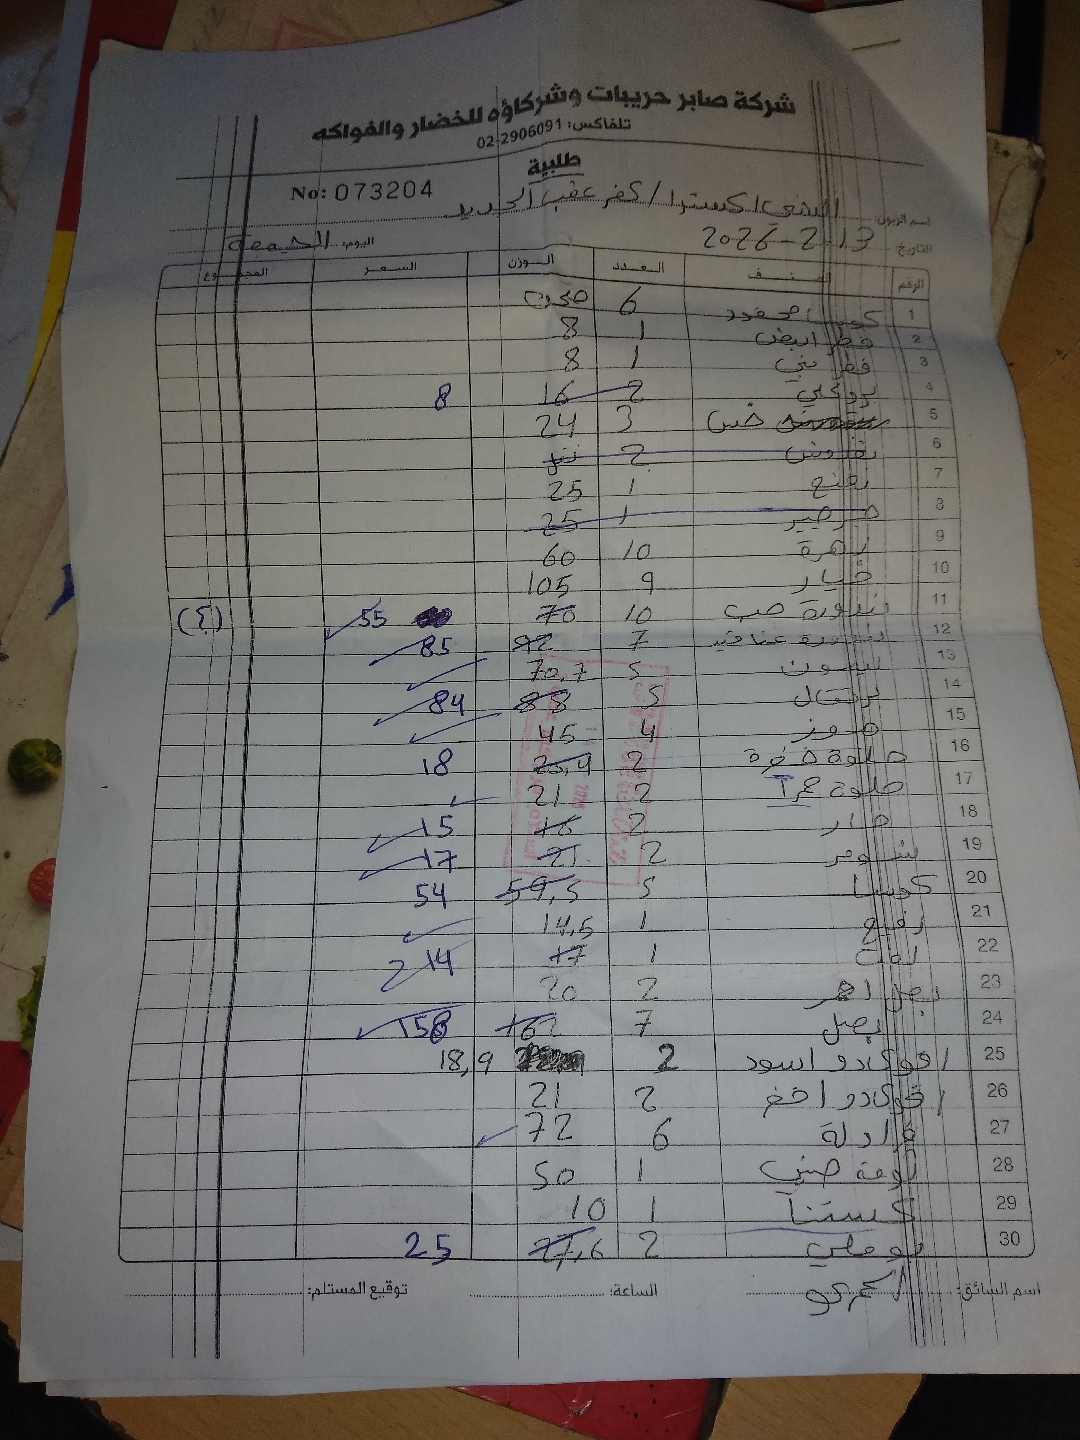 شركة صابر حريبات وشركاؤه للخضار والفواكه
تلفاكس: 02-2906091
طلبية
No: 073204
اسم الزبون: الشني اكسترا / كفر عقب الجديد
التاريخ: 13-2-2026 اليوم: الجمعة
الرقم الصنف العدد الوزن السعر المجموع
1 6
2 فطر ابيض 1 8
3 فطر بني 1 8
4 بروكلي 2 16 8
5 خس 3 24
6 بقدونس 2
7 نعنع 1 25
8 جرجير 1 25
9 زهرة 10 60
10 خيار 9 105
11 بندورة حب 10 70 55 (٤)
12 بندورة عناقيد 7 92 85
13 ليمون 5 70,7
14 برتقال 5 88 84
15 موز 4 45
16 حلوة خضرة 2 20,4 18
17 حلوة حمرا 2 21
18 حار 2 18 15
19 شومر 2 21 17
20 كوسا 5 59,5 54
21 رفيع 1 14,5
22 لفت 1 17 14
23 بصل احمر 2 20
24 بصل 7 162 158
25 افوكادو اسود 2 18,9
26 افوكادو اخضر 2 21
27 6 72
28 ثومة صيني 1 50
29 كستنا 1 10
30 بوملي 2 27,6 25
اسم السائق: الساعة: توقيع المستلم: